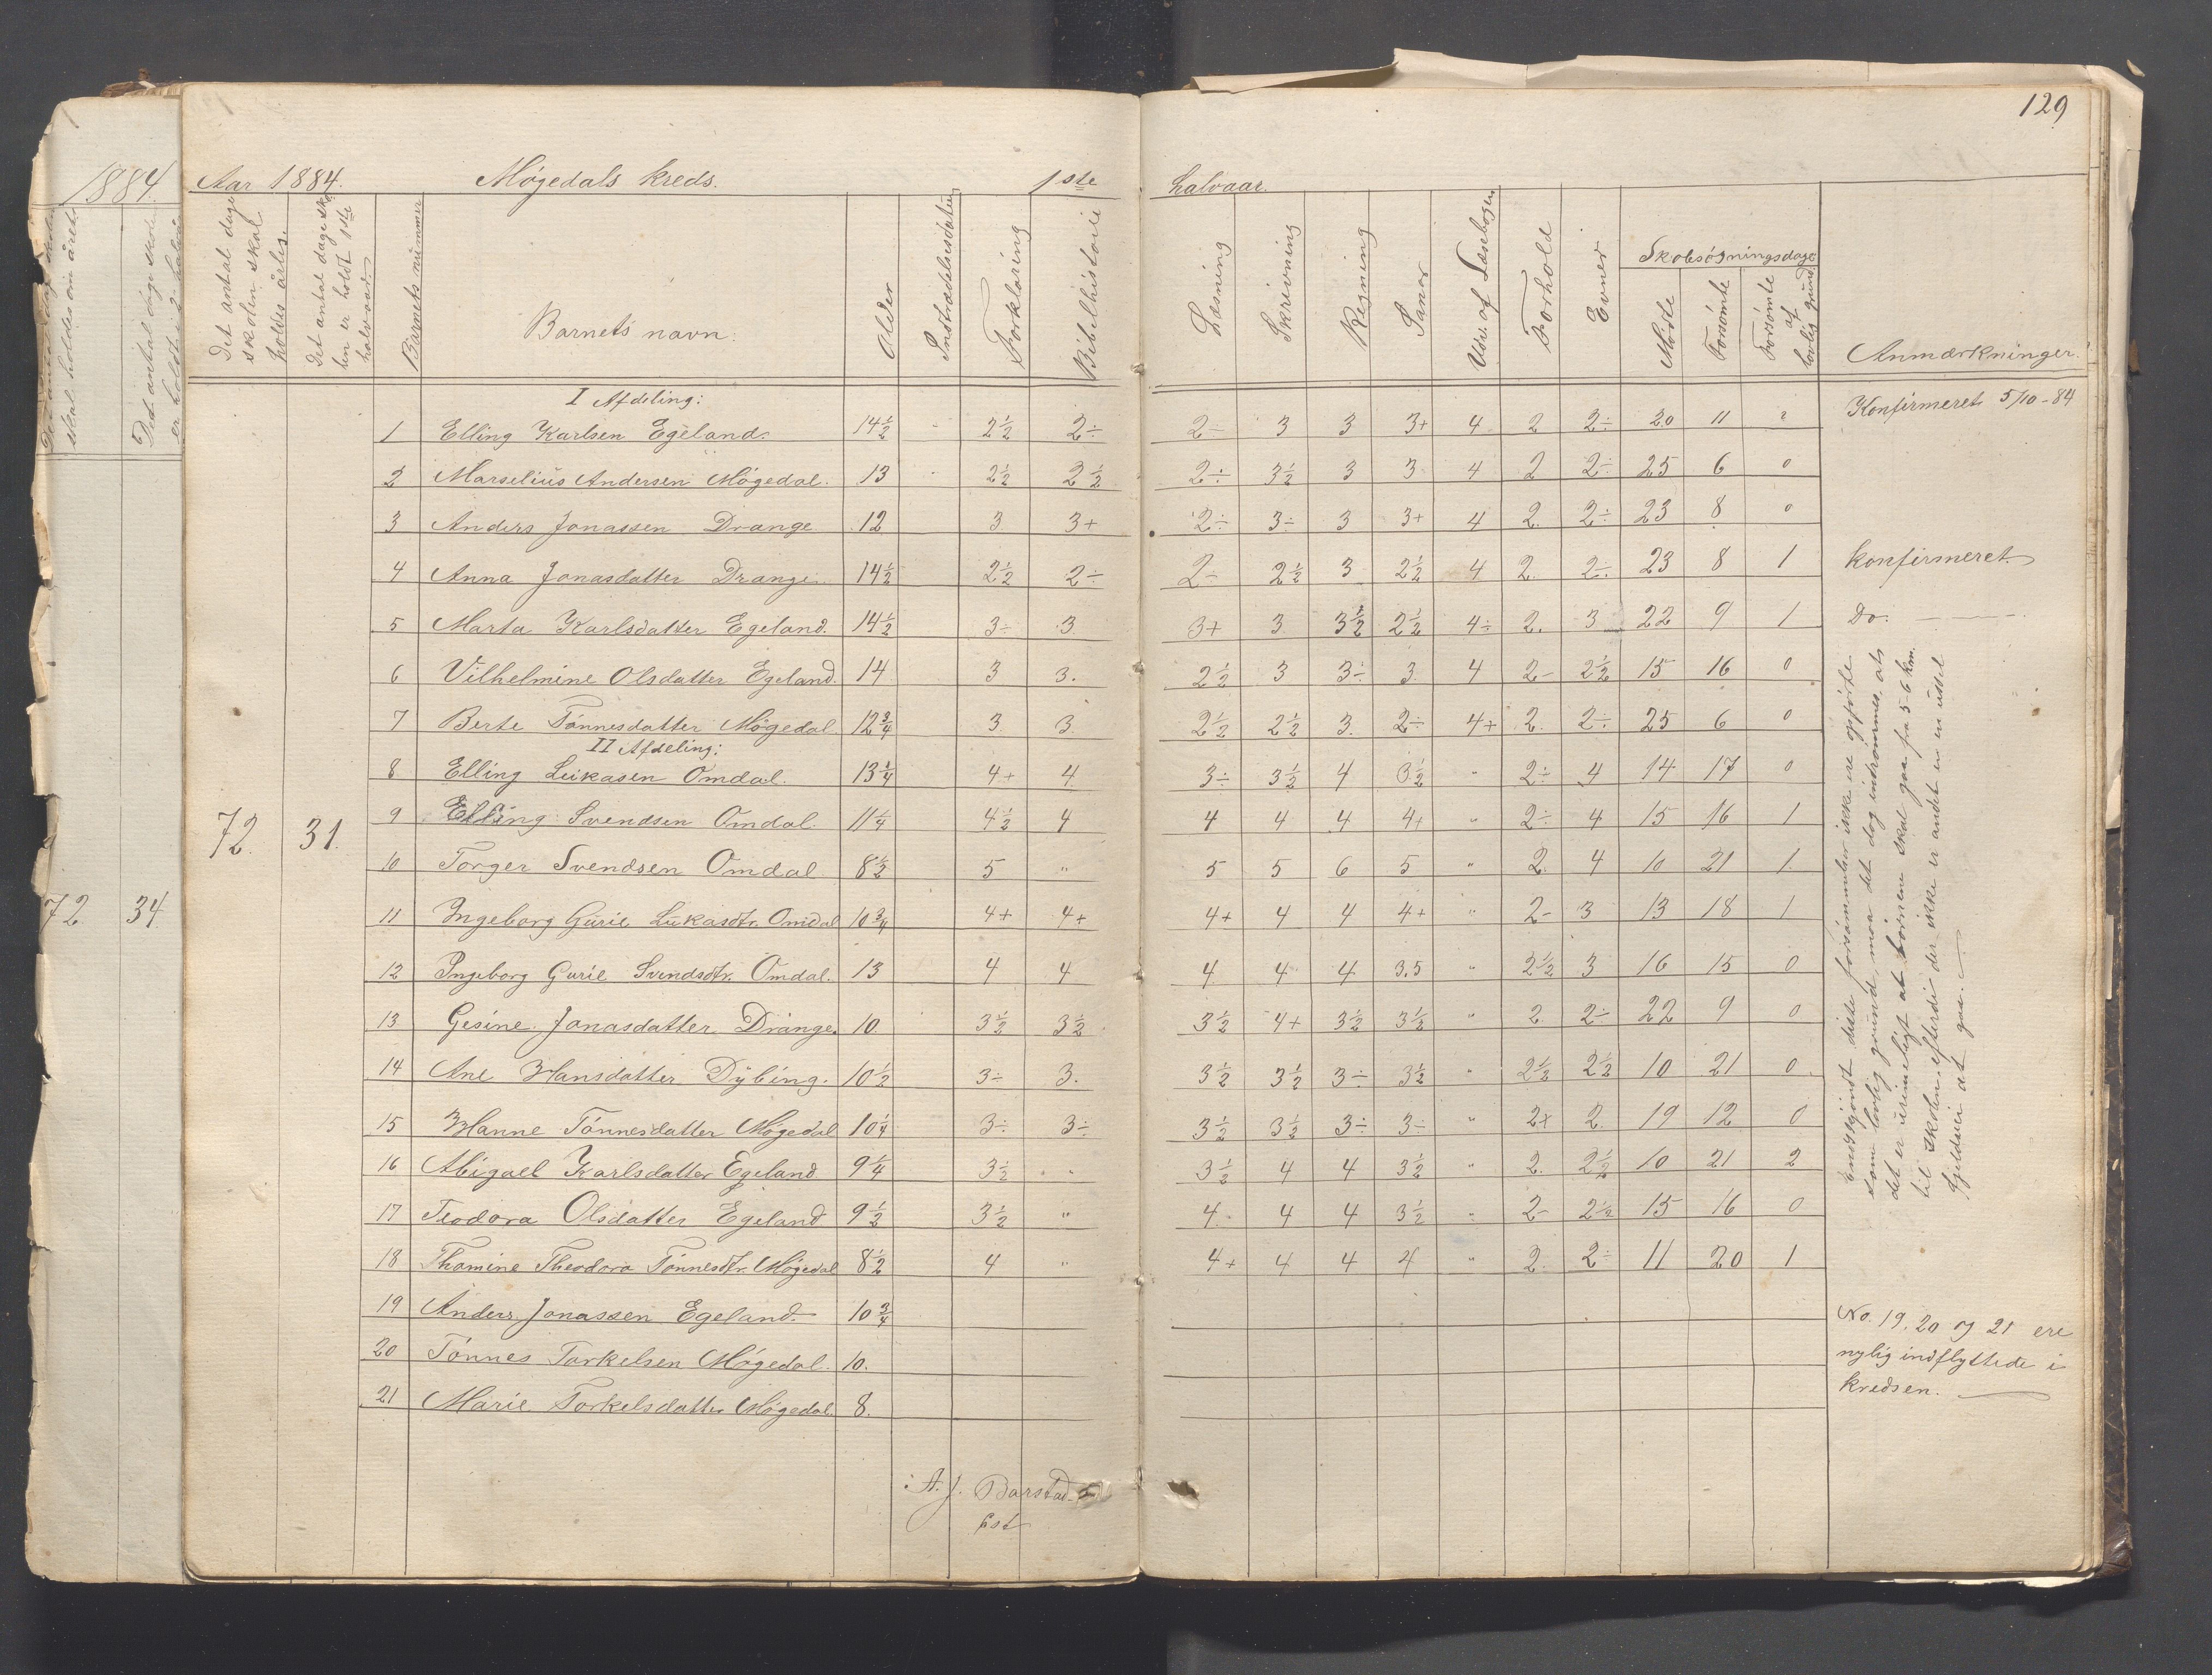 129
1884.
Aar 1884. Møgedals kreds. 1ste halvaar.
Det antal dage skolen skal holdes årlig.
Det antal dage skolen er holdt 1ste halvaar
Barnets nummer
Barnets navn.
Alder
Indtrædelsesdatum
Forklaring
Bibelhistorie
Læsning
Skrivning
Regning
Sang
Udv. af Læsebogen
Forhold
Evner
Skolesøgningsdage
Mødte
Forsømte
Forsømte af lovlig grund
Anmærkninger.
I Afdeling:
1 Elling Karlsen Egeland. 14½ 2½ 2÷ 2÷ 3 3 3+ 4 2 2÷ 20 11 2 Konfirmeret 5/10-84
2 Marselius Andersen Møgedal. 13 2½ 2½ 2÷ 3½ 3 3 4 2 2÷ 25 6 0
3 Anders Jonassen Drange 12 3 3+ 2÷ 3÷ 3 3+ 4 2. 2÷ 23 8 0
4 Anna Jonasdatter Drange 14½ 2½ 2÷ 2÷ 2½ 3 2½ 4 2. 2÷ 23 8 1 konfirmeret.
5 Marta Karlsdatter Egeland. 14½ 3÷ 3 3+ 3 3½ 2½ 4÷ 2. 3 22 9 1 Do.
6 Vilhelmine Olsdatter Egeland. 14 3 3. 2½ 3 3÷ 3 4 2- 2½ 15 16 0
7 Berte Tønnesdatter Møgedal 12¾ 3 3 2½ 2½ 3. 2÷ 4+ 2. 2÷ 25 6 0
II Afdeling:
8 Elling Lukasen Omdal. 13¼ 4+ 4 3÷ 3½ 4 3½ " 2÷ 4 14 17 0
9 Elling Svendsen Omdal. 11¼ 4½ 4 4 4 4 4+ " 2÷ 4 15 16 1
72. 31.
10 Torger Svendsen Omdal 8½ 5 " 5 5 6 5 " 2. 4 10 21 1.
72 34.
11 Ingeborg Gurie Lukasdtr. Omdal 10¾ 4+ 4+ 4+ 4 4 4+ " 2- 3 13 18 1
12 Ingeborg Gurie Svendsdtr. Omdal. 13 4 4 4 4 4 3.5 " 2½ 3 16 15 0
13 Gesine Jonasdatter Drange. 10 3½ 3½ 3½ 4+ 3½ 3½ " 2. 2÷ 22 9 0
14 Ane Hansdatter Dybing. 10½ 3÷ 3. 3½ 3½ 3÷ 3½ " 2½ 2½ 10 21 0
15 Hanne Tønnesdatter Møgedal 10¼ 3÷ 3÷ 3½ 3½ 3÷ 3÷ " 2+ 2. 19 12 0
16 Abigael Karlsdatter Egeland 9¼ 3½ " 3½ 4 4 3½ " 2. 2½ 10 21 2
17 Teodora Olsdatter Egeland 9½ 3½ " 4 4 4 3½ " 2- 2½ 15 16 0
18 Thomine Theodora Tønnesdtr. Møgedal 8½ 4 " 4+ 4 4 4 " 2. 2÷ 11 20 1
19 Anders Jonassen Egeland. 10¾
20 Tønnes Torkelsen Møgedal. 10.
21 Marie Torkelsdatter Møgedal. 8.
Endskjøndt disse forsømmelser ikke ere opførte
som lovlig grund, maa det dog indrømmes, at
det er urimeligt at børnene skal gaa fra 5-6 km.
til skolen efterdi der ikke er andet en en ussel
fjeldvei at gaa.
No. 19, 20 og 21 ere
nylig indflyttede i
kredsen.
A. J. Barstad